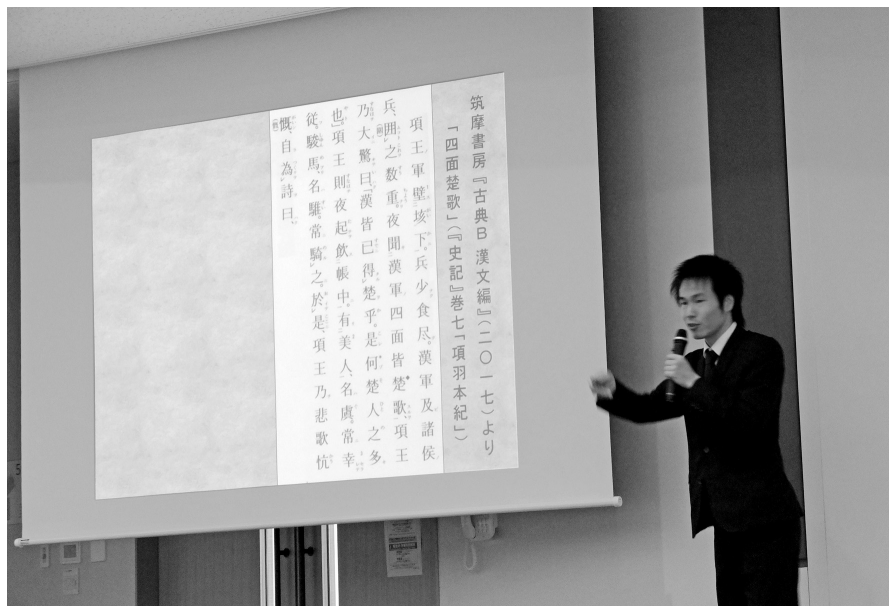 筑摩書房『古典B 漢文編』(二〇一七)より
「四面楚歌」(『史記』巻七「項羽本紀」)
項王軍壁垓下。兵少食尽。漢軍及諸侯
兵、囲之数重。夜聞漢軍四面皆楚歌、項王
乃大驚曰、「漢皆已得楚乎。是何楚人之多
也」項王則夜起、飲帳中。有美人、名虞。常幸
従。駿馬、名騅。常騎之。於是、項王乃悲歌忼
慨、自為詩曰、